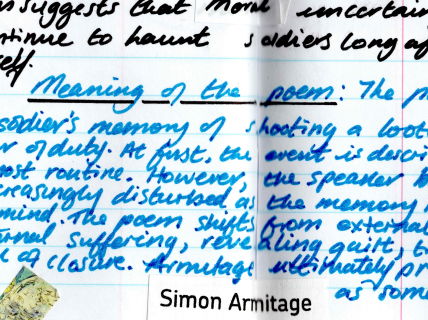 suggests that moral uncertain
ntinue to haunt soldiers long af
elf.
Meaning of the poem: The p
soldier's memory of shooting a loot
r of duty. At first, the event is descri
ost routine. However, the speaker b
creasingly disturbed as the memory r
mind. The poem shifts from external
ernal suffering, revealing guilt, t
k of closure. Armitage ultimately pr
as some
Simon Armitage